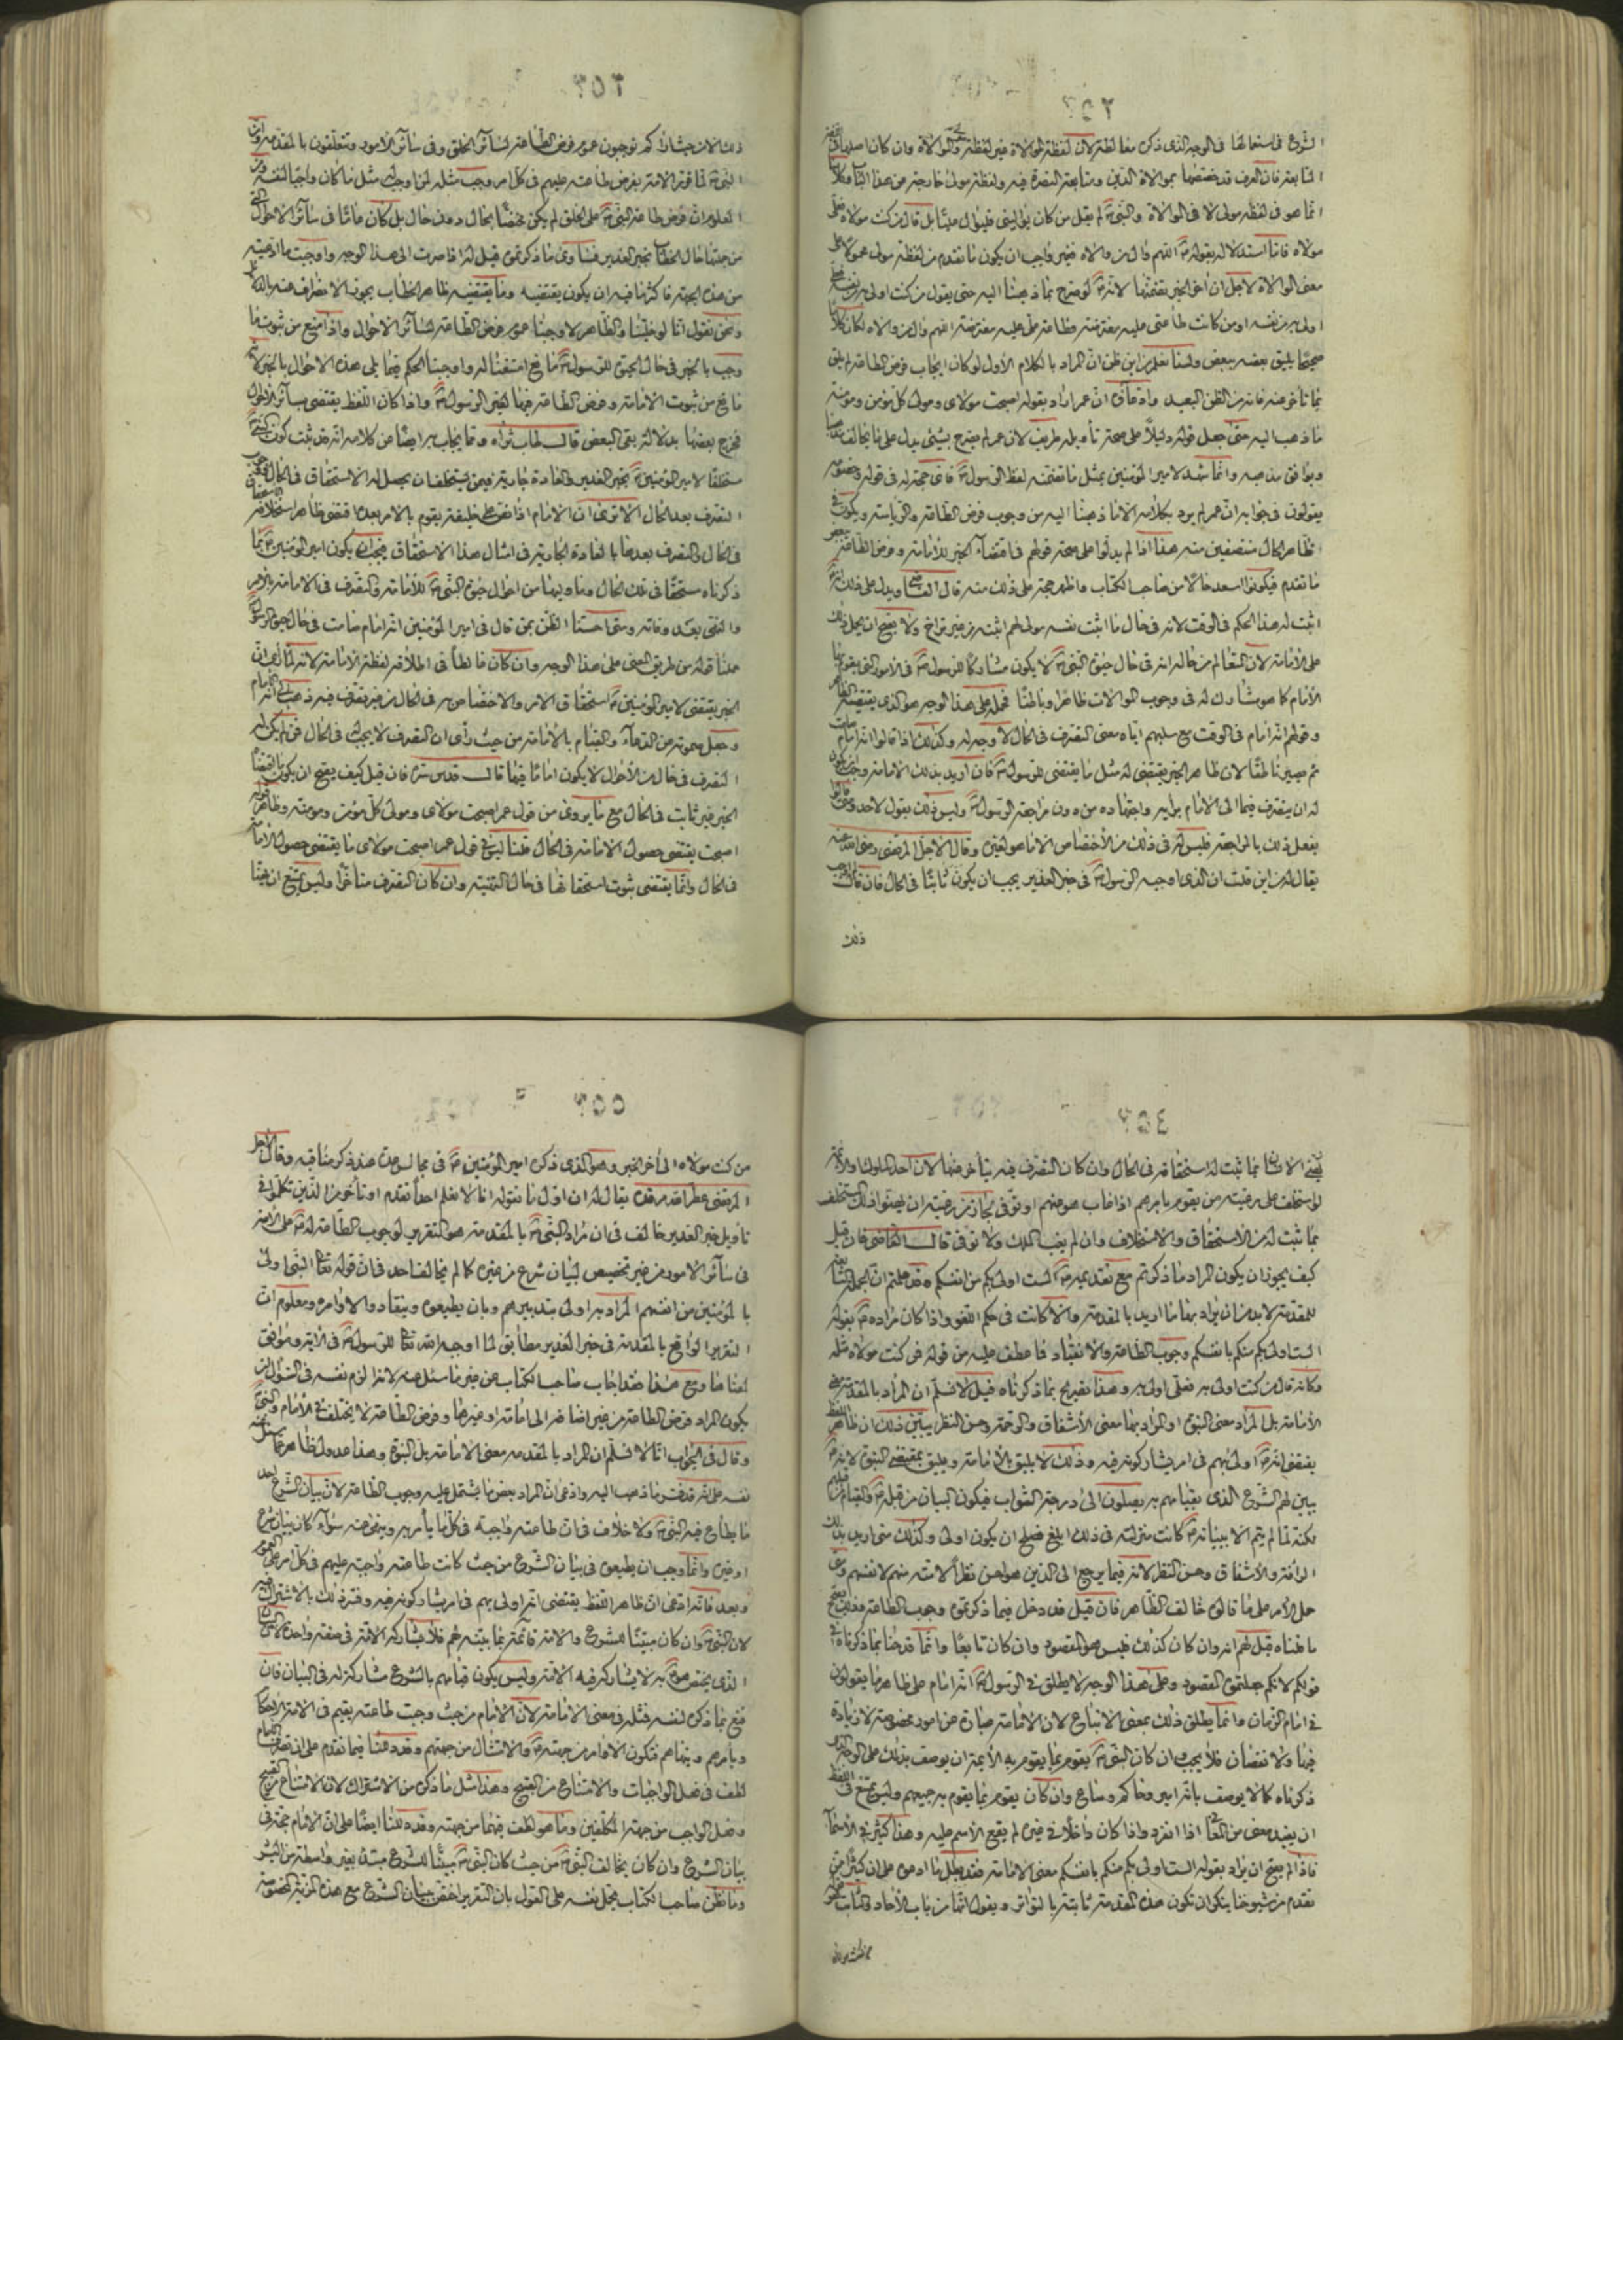 ٢٥٢
الشرع فى استعمالها فى الوجه الذى ذكره مغالطة لان لفظة الموالاة غير لفظة مولى والموالاة وان كان اصلها
المتابعة فان العرف قد خصصها بموالاة الدين ومتابعة النصرة فيه ولفظة مولى خارجة من هذا الباب وكلامنا
انما هو فى لفظة مولى لا فى الموالاة والنبى لم يقل من كان يوالينى فليوال عليا بل قال من كنت مولاه فعلى
مولاه فاما استدلاله بقوله اللهم وال من والاه فغير واجب ان يكون ما تقدم من لفظة مولى محمولا على
معنى الموالاة لاجل ان اخر الخبر يتضمنها لانه لو صرح بما ذهبنا اليه حتى يقول من كنت اولى به من نفسه فعلى
اولى به من نفسه او من كانت طاعتى عليه مفترضة فطاعة على عليه مفترضة اللهم وال من والاه لكان كلاما
صحيحا يليق بعضه ببعض ولسنا نعلم من اين ظن ان المراد بالكلام الاول لو كان ايجاب فرض الطاعة لم يلق
بما تأخر عنه فانه من الظن البعيد وادعاؤه ان عمر اراد بقوله اصبحت مولاى ومولى كل مؤمن ومؤمنة
ما ذهب اليه حتى جعل قوله دليلا على صحة تأويله طريف لان عمر لم يصرح بشىء يدل على ما يخالف مذهبنا
ويوافق مذهبه وانما شهد لامير المؤمنين بمثل ما تضمنه لفظ الرسول فاى حجة له فى قوله وخصومه
يقولون فى جوابه ان عمر لم يرد بكلامه الا ما ذهبنا اليه من وجوب فرض الطاعة والرياسة ويكون فى
ظاهر الحال منتصفين منه هذا اذا لم يدلوا على صحة قولهم فى اقتضاء الخبر للامامة وفرض الطاعة ببعض
ما تقدم فيكونوا اسعد حالا من صاحب الكتاب واظهر حجة على ذلك منه قال القاضى ويدل على ذلك انه
اثبت له هذا الحكم فى الوقت لانه فى حال ما اثبت نفسه مولى لهم اثبته من غير تراخ ولا يصح ان يحمل ذلك
على الامامة لان المتعالم من حاله انه فى حال حيوة النبى لا يكون مشاركا للرسول فى الامور التى يقوم بها
الامام كما هو مشارك له فى وجوب الموالاة ظاهرا وباطنا فحمله على هذا الوجه هو الذى يقتضيه الظاهر
وقولهم انه امام فى الوقت مع سلبهم اياه معنى التصرف فى الحال لا وجه له وكذلك اذا قالوا انه امام صامت
ثم يصير ناطقا لان ظاهر الخبر يقتضى له مثل ما يقتضى للرسول فان اريد بذلك الامامة وجب ان يكون
له ان يتصرف فيما الى الامام برأيه واجتهاده من دون مراجعة الرسول وليس ذلك بقول لاحد ومتى قالوا
يفعل ذلك بالمراجعة فليس له فى ذلك من الاختصاص الا ما هو لغيره وقال الاجل المرتضى رضى الله عنه
يقال له من اين قلت ان الذى اوجبه الرسول فى خبر الغدير يجب ان يكون ثابتا فى الحال فان قال اوجب
ذلك
٢٥٣
ذلك لان حيث اراكم توجبون عموم فرض الطاعة لسائر الخلق وفى سائر الامور وتتعلقون بالمقدمة وان
النبى لما قرر الامة بفرض طاعته عليهم فى كل امر وجب مثله لمن اوجب له مثل ما كان واجبا لنفسه ومن
المعلوم ان فرض طاعة النبى على الخلق لم يكن مختصا بحال دون حال بل كان عاما فى سائر الاحوال التى
من جملتها حال الخطاب بخبر الغدير فساوى ما ذكرتموه قيل له اذا صرت الى هذا الوجه واوجبت ما ادعيته
من هذه الجهة فاكثر ما فيه ان يكون يقتضيه وما يقتضيه ظاهر الخطاب يجوز الانصراف عنه بالدلالة
ونحن نقول انا لو خلينا والظاهر لاوجبنا عموم فرض الطاعة لسائر الاحوال واذا منع من ثبوت ما
وجب بالخبر فى حال حيوة الرسول مانع امتنعنا له واوجبنا الحكم فيما يلى هذه الاحوال بالخبر لانه لا
مانع من ثبوت الامامة وفرض الطاعة فيها لغير الرسول واذا كان اللفظ يقتضى سائر الاحوال
فخرج بعضها بدلالة بقى البعض قال طاب ثراه ومما يجاب به ايضا عن كلامه انه قد ثبت كون النبى
مستخلفا لامير المؤمنين بخبر الغدير والعادة جارية فيمن يستخلف ان يحصل له الاستحقاق فى الحال ووجوب
التصرف بعد الحال الا ترى ان الامام اذا نص على خليفة يقوم بالامر بعده اقتضى ظاهر استخلافه الاستحقاق
فى الحال والتصرف بعدها بالعادة الجارية فى امثال هذا الاستحقاق فيجب ان يكون امير المؤمنين بما
ذكرناه مستحقا فى تلك الحال وما وليها من احوال حيوة النبى للامامة والتصرف فى الامامة بالامر
والنهى بعد وفاته ومتى احسنا الظن بمن قال فى امير المؤمنين انه امام صامت فى حال حيوة الرسول
حملنا قوله من طريق المعنى على هذا الوجه وان كان غالطا فى اطلاقه لفظة الامامة لانه لما رأى ان
الخبر يقتضى لامير المؤمنين استحقاق الامر والاختصاص به فى الحال من غير تصرف فيه ذهب الى انه امام
وجعل صموته عن الدعاء والقيام بالامامة من حيث رأى ان التصرف لا يجب فى الحال فمن لم يكن له
التصرف فى حال من الاحوال لا يكون اماما فيها قال قدس سره فان قيل كيف يصح ان يكون ما اقتضاه
الخبر غير ثابت فى الحال مع ما يروى من قول عمر اصبحت مولاى ومولى كل مؤمن ومؤمنة وظاهر قوله
اصبحت يقتضى حصول الامامة فى الحال قلنا ليس فى قول عمر اصبحت مولاى ما يقتضى حصول الامامة
فى الحال وانما يقتضى ثبوت استحقاقها فى حال التهنئة وان كان التصرف متأخرا وليس يمتنع ان يهنأ
٢٥٤
يهنى الانسان بما ثبت له استحقاقه فى الحال وان كان التصرف فيه يتأخر عنها لان احد الملوك والائمة
لو استخلف على رعيته من يقوم بامرهم اذا غاب عنهم او توفى لجاز من رعيته ان يهنئوا ذلك المستخلف
بما ثبت له من الاستحقاق والاستخلاف وان لم يغب الملك ولا توفى قال القاضى فان قيل
كيف يجوز ان يكون المراد ما ذكرتم مع تقديمه الست اولى بكم من انفسكم وقد علمتم ان الجملة التابعة
للمقدمة لا بد من ان يراد بها ما اريد بالمقدمة والا كانت فى حكم اللغو واذا كان مراده بقوله
الست اولى بكم منكم بانفسكم وجوب الطاعة والانقياد فما عطف عليه من قوله فمن كنت مولاه مثله
وكانه قال من كنت اولى به فعلى اولى به وهذا تصريح بما ذكرناه قيل لا نسلم ان المراد بالمقدمة معنى
الامامة بل المراد معنى النبوة او المراد بها معنى الاشفاق والرحمة وحسن النظر يبين ذلك ان ظاهر اللفظ
يقتضى انه اولى بهم فى امر يشاركونه فيه وذلك لا يليق بالامامة ويليق بمقتضى النبوة لانه
يبين لهم الشرع الذى بقيامهم به يصلون الى درجة الثواب فيكون البيان من قبله والقيام من قبلهم
لكنه لما لم يتم الا ببيانه كانت منزلته فى ذلك ابلغ فصلح ان يكون اولى وكذلك متى اريد بذلك
الرأفة والاشفاق وحسن النظر لانه فيما يرجع الى الدين هو احسن نظرا لامته منهم لانفسهم ومتى
حمل الامر على ما قالوه خالف الظاهر فان قيل قد دخل فيما ذكرتموه وجوب الطاعة وذلك يصح
ما قلناه قيل لهم انه وان كان كذلك فليس هو المقصود وان كان تابعا وانما قدحنا بما ذكرناه فى
قولكم لانكم جعلتموه المقصود وعلى هذا الوجه لا يطلق فى الرسول انه امام على ظاهر ما يقولون
فى امام الزمان وانما يطلق ذلك بمعنى الاتباع لان الامامة عبارة عن امور مخصوصة لا زيادة
فيها ولا نقصان فلا يجب وان كان النبى يقوم بما يقوم به الائمة ان يوصف بذلك على الوجه الذى
ذكرناه كما لا يوصف بانه امير وحاكم وساع وان كان يقوم بما يقوم به جميعهم وليس يمتنع فى اللفظ
ان يفيد معنى من المعانى اذا انفرد واذا كان داخلا فى غيره لم يقع الاسم عليه وهذا كثير فى الاسماء
فاذا لم يصح ان يراد بقوله الست اولى بكم منكم بانفسكم معنى الامامة فقد بطل ما ادعوه على ان كثيرا ممن
تقدم من شيوخنا ينكر ان تكون هذه المقدمة ثابتة بالتواتر ويقول انها من باب الاحاد والثابت
٢٥٥
من كنت مولاه الى آخر الخبر وهو الذى ذكره امير المؤمنين فى مجالس عدة عند ذكر مناقبه وقال الاجل
المرتضى عطر الله مرقده يقال له ان اول ما نقوله انا لا نعلم احدا تقدم او تأخر من الذين تكلموا فى
تأويل خبر الغدير خالف فى ان مراد النبى بالمقدمة هو التقرير لوجوب الطاعة له على الامة
فى سائر الامور من غير تخصيص لبيان شرع من غيره كما لم يخالف احد فى ان قوله تعالى النبى اولى
بالمؤمنين من انفسهم المراد به اولى بتدبيرهم وبان يطيعوه وينقادوا لاوامره ومعلوم ان
التقرير الواقع بالمقدمة فى خبر الغدير مطابق لما اوجبه الله تعالى للرسول فى الاية وموافق
لمعناها ومع هذا فقد اجاب صاحب الكتاب عن غير ما سئل عنه لانه الزم نفسه فى السؤال ان
يكون المراد فرض الطاعة من غير اضافة الى امامة او غيرها وفرض الطاعة لا يختلف فى الامام والنبى
وقال فى الجواب انا لا نسلم ان المراد بالمقدمة معنى الامامة بل النبوة وهذا عدول ظاهر عما سئل عنه
نفسه على انه قد فسر ما ذهب اليه وادعى ان المراد بعض ما يشتمل عليه وجوب الطاعة لان بيان الشرع احد
ما يطاع فيه النبى ولا خلاف فى ان طاعته واجبة فى كل ما يأمر به وينهى عنه سواء كان بيان شرع
او غيره وانما وجب ان يطيعوه فى بيان الشرع من حيث كانت طاعته واجبة عليهم فى كل امر على العموم
وبعد فانه ادعى ان ظاهر اللفظ يقتضى انه اولى بهم فى امر يشاركونه فيه وفسر ذلك بالاشتراك فيه
لان النبى وان كان مبينا للشرع والامة قائمة بما بينه لهم فلا يشاركه الامة فى صفة واحدة لان البيان
الذى يختص هو به لا يشاركه فيه الامة وليس يكون قيامهم بالشرع مشاركة له فى البيان فان
قنع بما ذكره لنفسه فمثله فى معنى الامامة لان الامام من حيث وجبت طاعته يقيم فى الامة الاحكام
ويأمرهم وينهاهم فتكون الاوامر من جهته والامتثال من جهتهم وقد دللنا فيما تقدم على ان تصرف الامام
لطف فى فعل الواجبات والامتناع من القبيح وهذا مثل ما ذكره من الاشتراك لان الامتناع من القبيح
وفعل الواجب من جهة المكلفين وما هو لطف فيهما من جهته وقد دللنا ايضا على ان الامام حجة فى
بيان الشرع وان كان يخالف النبى من حيث كان النبى مبينا للشرع مبتدئا بغير واسطة من البشر
وما نظن صاحب الكتاب يحمل نفسه على القول بان التقرير اختص ببيان الشرع مع هذه المزية المخصوصة